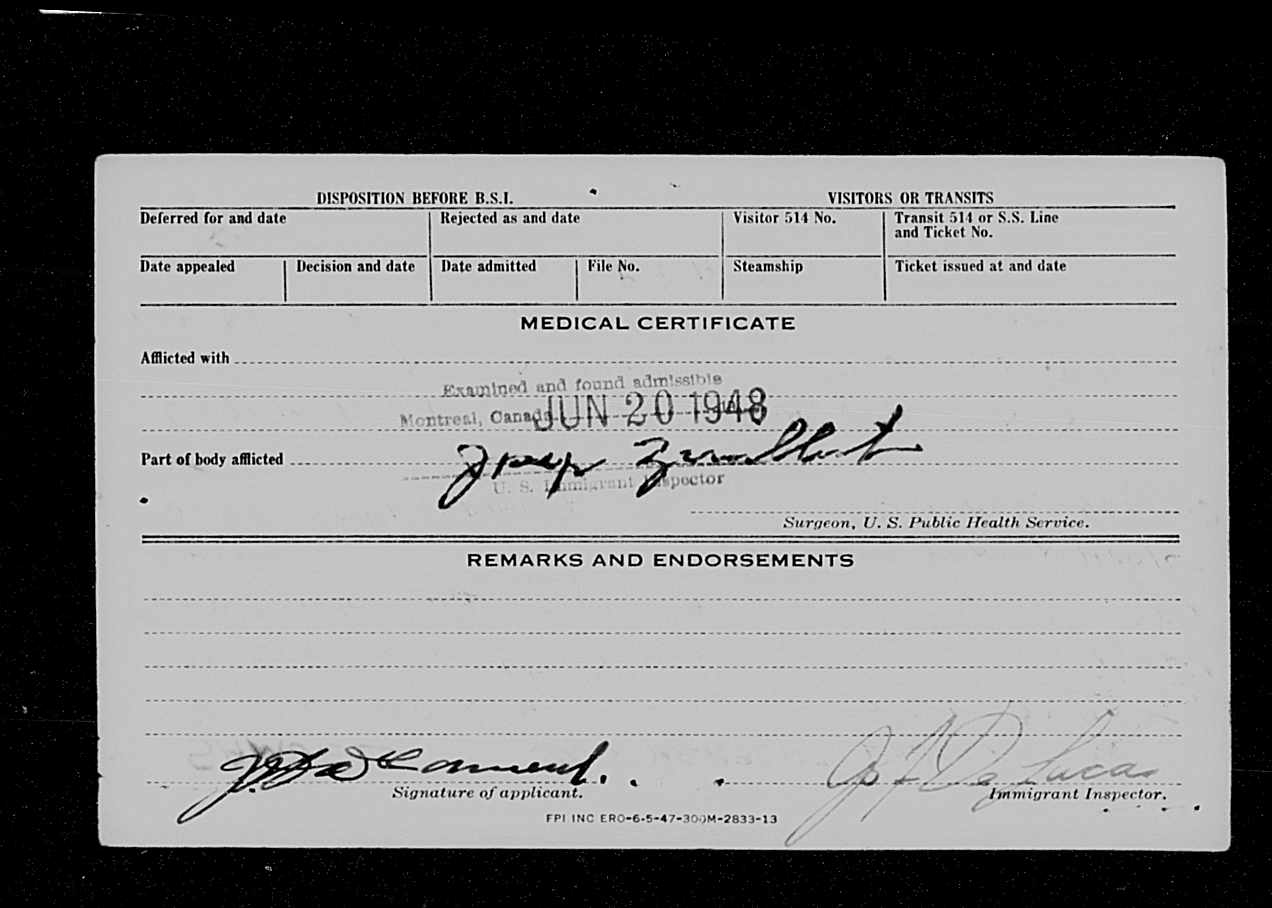 DISPOSITION BEFORE B.S.I.
VISITORS OR TRANSITS
Deferred for and date
Rejected as and date
Visitor 514 No.
Transit 514 or S.S. Line
and Ticket No.
Date appealed
Decision and date
Date admitted
File No.
Steamship
Ticket issued at and date
MEDICAL CERTIFICATE
Afflicted with
Examined and found admissible
Montreal, Canada JUN 20 1948
Part of body afflicted
U. S. Immigrant Inspector
Surgeon, U. S. Public Health Service.
REMARKS AND ENDORSEMENTS
Lucas
Signature of applicant.
Immigrant Inspector.
FPI INC ERO-6-5-47-300M-2833-13